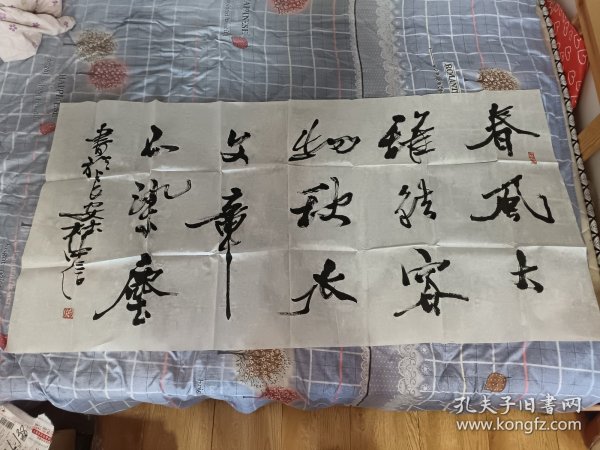 春風大
雅能容
物秋水
文章
不染塵
書於長安
孔夫子旧书网
www.kongfz.com